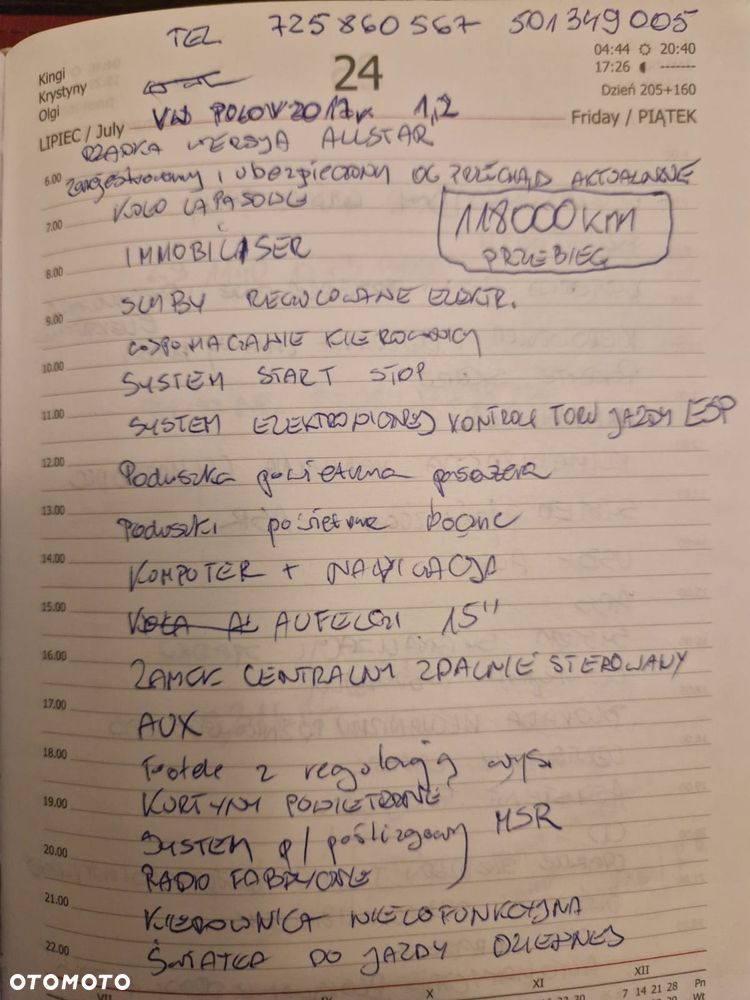 TEL 725860567 501349005
Kingi
Krystyny
Olgi
24
04:44 20:40
17:26 -------
Dzień 205+160
LIPIEC / July
Friday / PIĄTEK
VW POLO V 2017r 1,2
RZADKA WERSJA ALLSTAR
6.00 Zarejestrowany i ubezpieczony OC PRZEGLĄD AKTUALNE
7.00 KOŁO ZAPASOWE
118000 km
PRZEBIEG
8.00 IMMOBILISER
9.00 SZYBY REGULOWANE ELEKTR.
WSPOMAGANIE KIEROWNICY
10.00 SYSTEM START STOP
11.00 SYSTEM ELEKTRONICZNEJ KONTROLI TORU JAZDY ESP
12.00 Poduszka powietrzna pasażera
13.00 Poduszki powietrzne boczne
14.00 KOMPUTER + NAWIGACJA
15.00 KOŁA AL AUFELGI 15"
16.00 ZAMEK CENTRALNY ZDALNIE STEROWANY
17.00 AUX
18.00 Fotele z regulacją wys.
19.00 KURTYNY POWIETRZNE
SYSTEM p/poślizgowy MSR
20.00 RADIO FABRYCZNE
21.00 KIEROWNICA WIELOFUNKCYJNA
22.00 ŚWIATŁA DO JAZDY DZIENNEJ
OTOMOTO
VII IX X XI XII
7 14 21 28 Pn
Wt